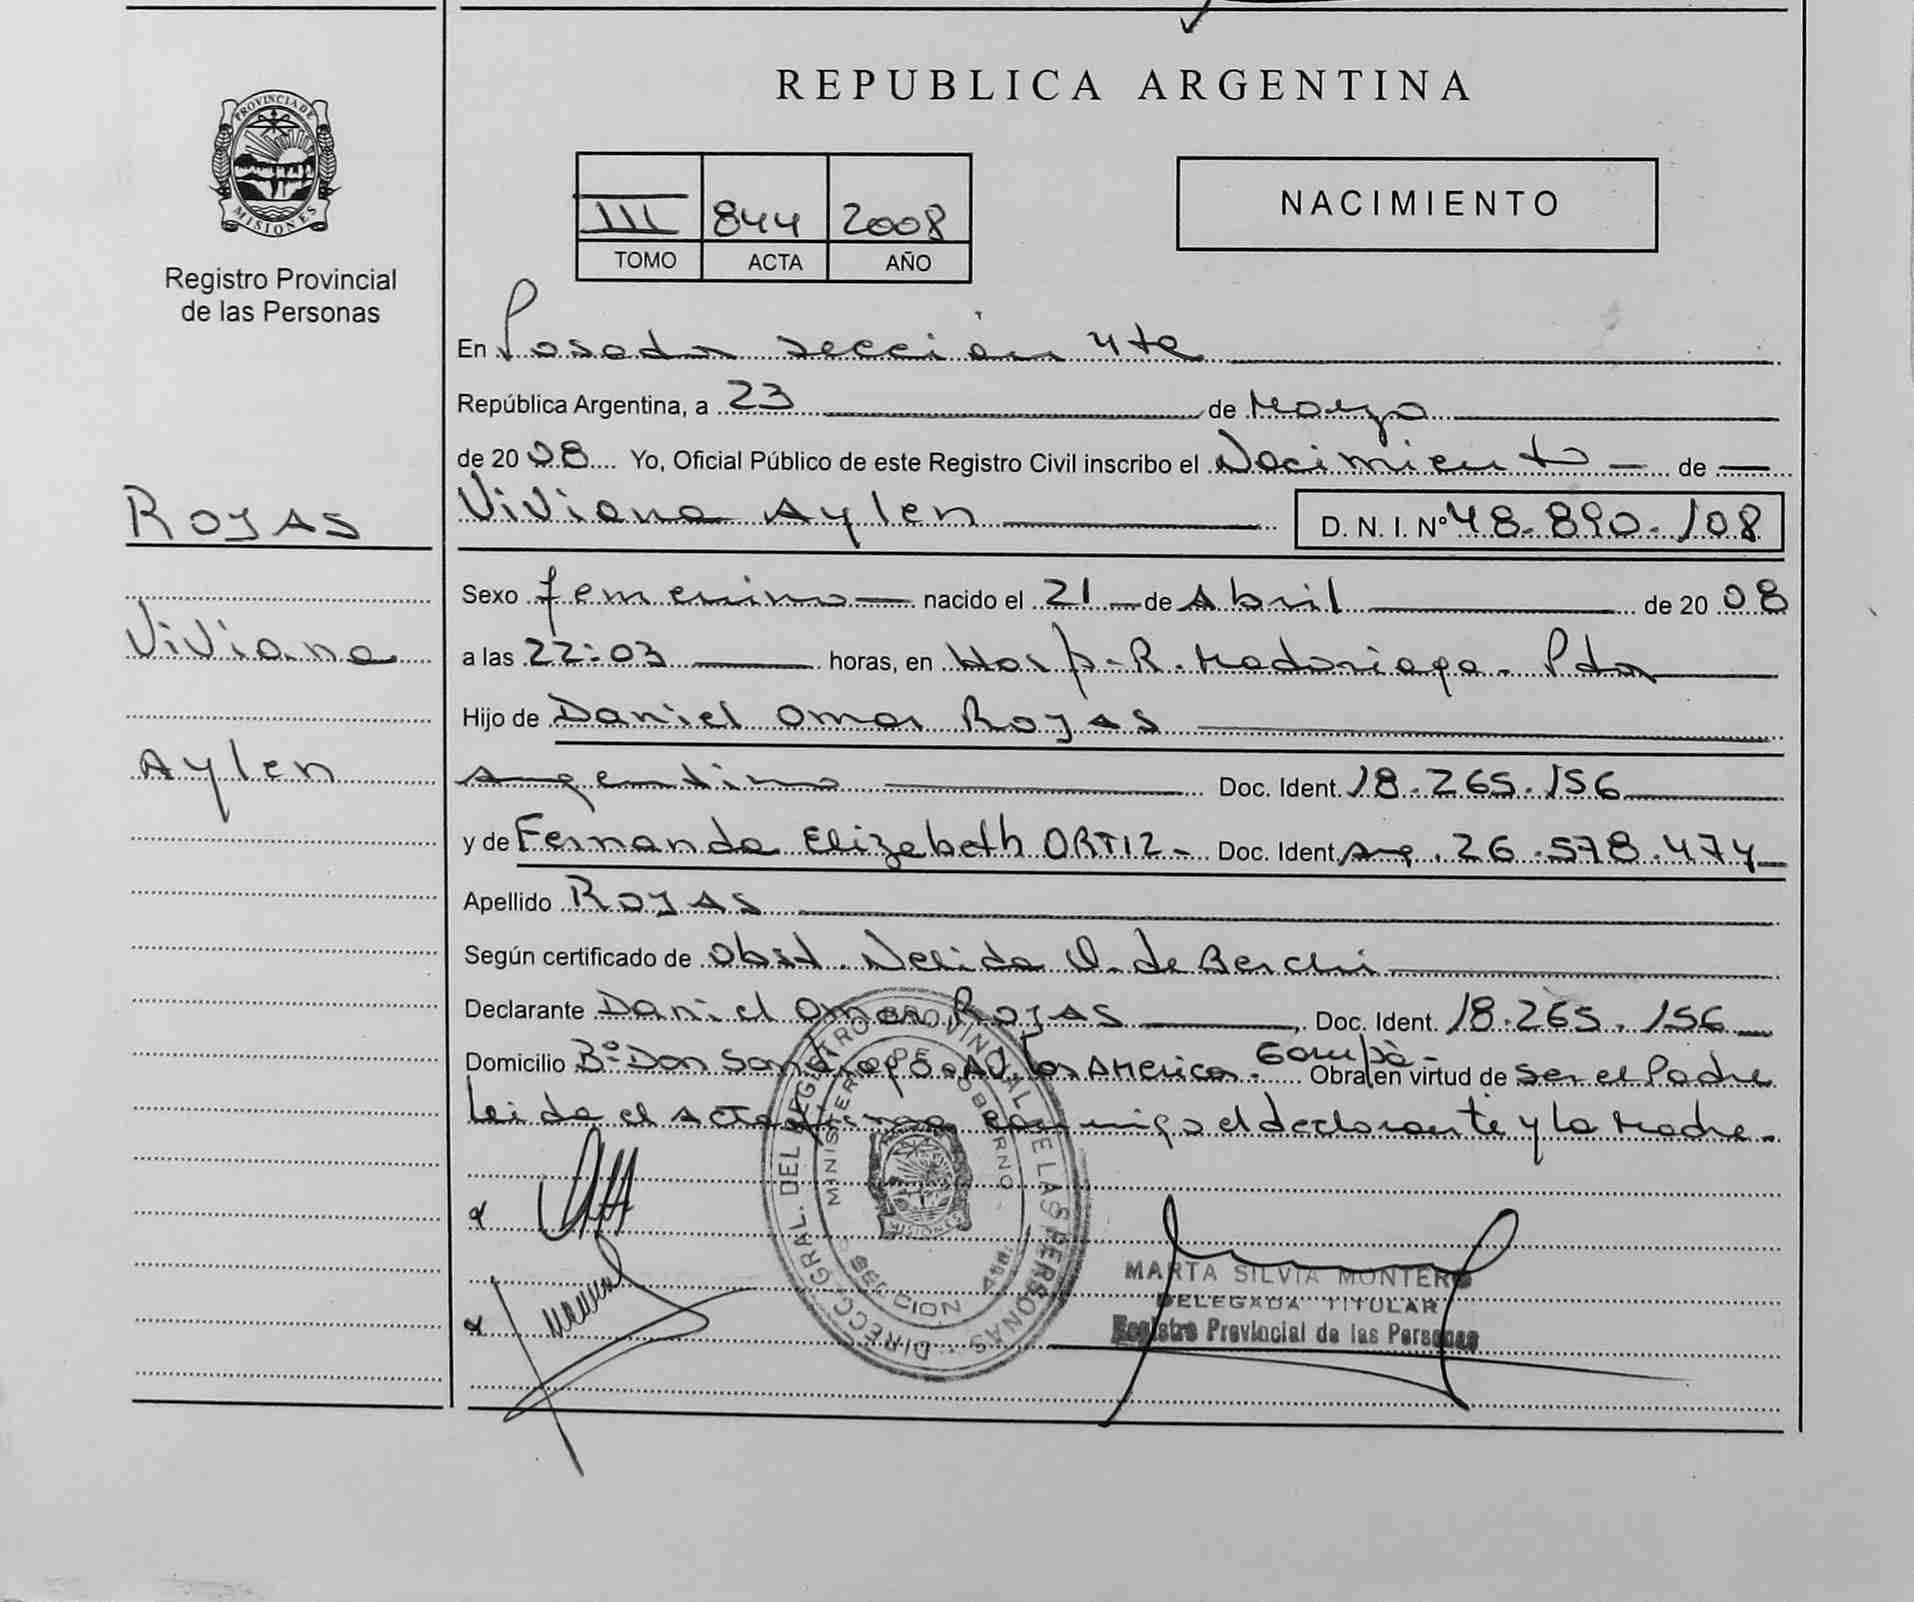 REPUBLICA ARGENTINA
PROVINCIA DE MISIONES
Registro Provincial
de las Personas
III 844 2008
TOMO ACTA AÑO
NACIMIENTO
En Posadas sección 4ta
República Argentina, a 23 de Marzo
de 2008 Yo, Oficial Público de este Registro Civil inscribo el Nacimiento de
ROJAS Viviana Aylen D. N. I. Nº 48.890.108
Sexo femenino nacido el 21 de Abril de 2008
Viviana a las 22:03 horas, en Hosp. R. Madariaga - Pdas
Hijo de Daniel Omar ROJAS
Aylen Argentino Doc. Ident. 18.265.156
y de Fernanda Elizabeth ORTIZ - Doc. Ident. Arg. 26.578.474
Apellido ROJAS
Según certificado de Obst. Nelida de Berchi
Declarante Daniel Omar ROJAS Doc. Ident. 18.265.156
Domicilio Bº Don Santiago Av. Las America. Garupá - Obra en virtud de ser el Padre
Leida el acta firman conmigo el declarante y la Madre.
DIRECC. GRAL. DEL REGISTRO PROVINCIAL DE LAS PERSONAS
MINISTERIO DE GOBIERNO
SECCION 4ta.
MARTA SILVIA MONTERO
DELEGADA TITULAR
Registro Provincial de las Personas